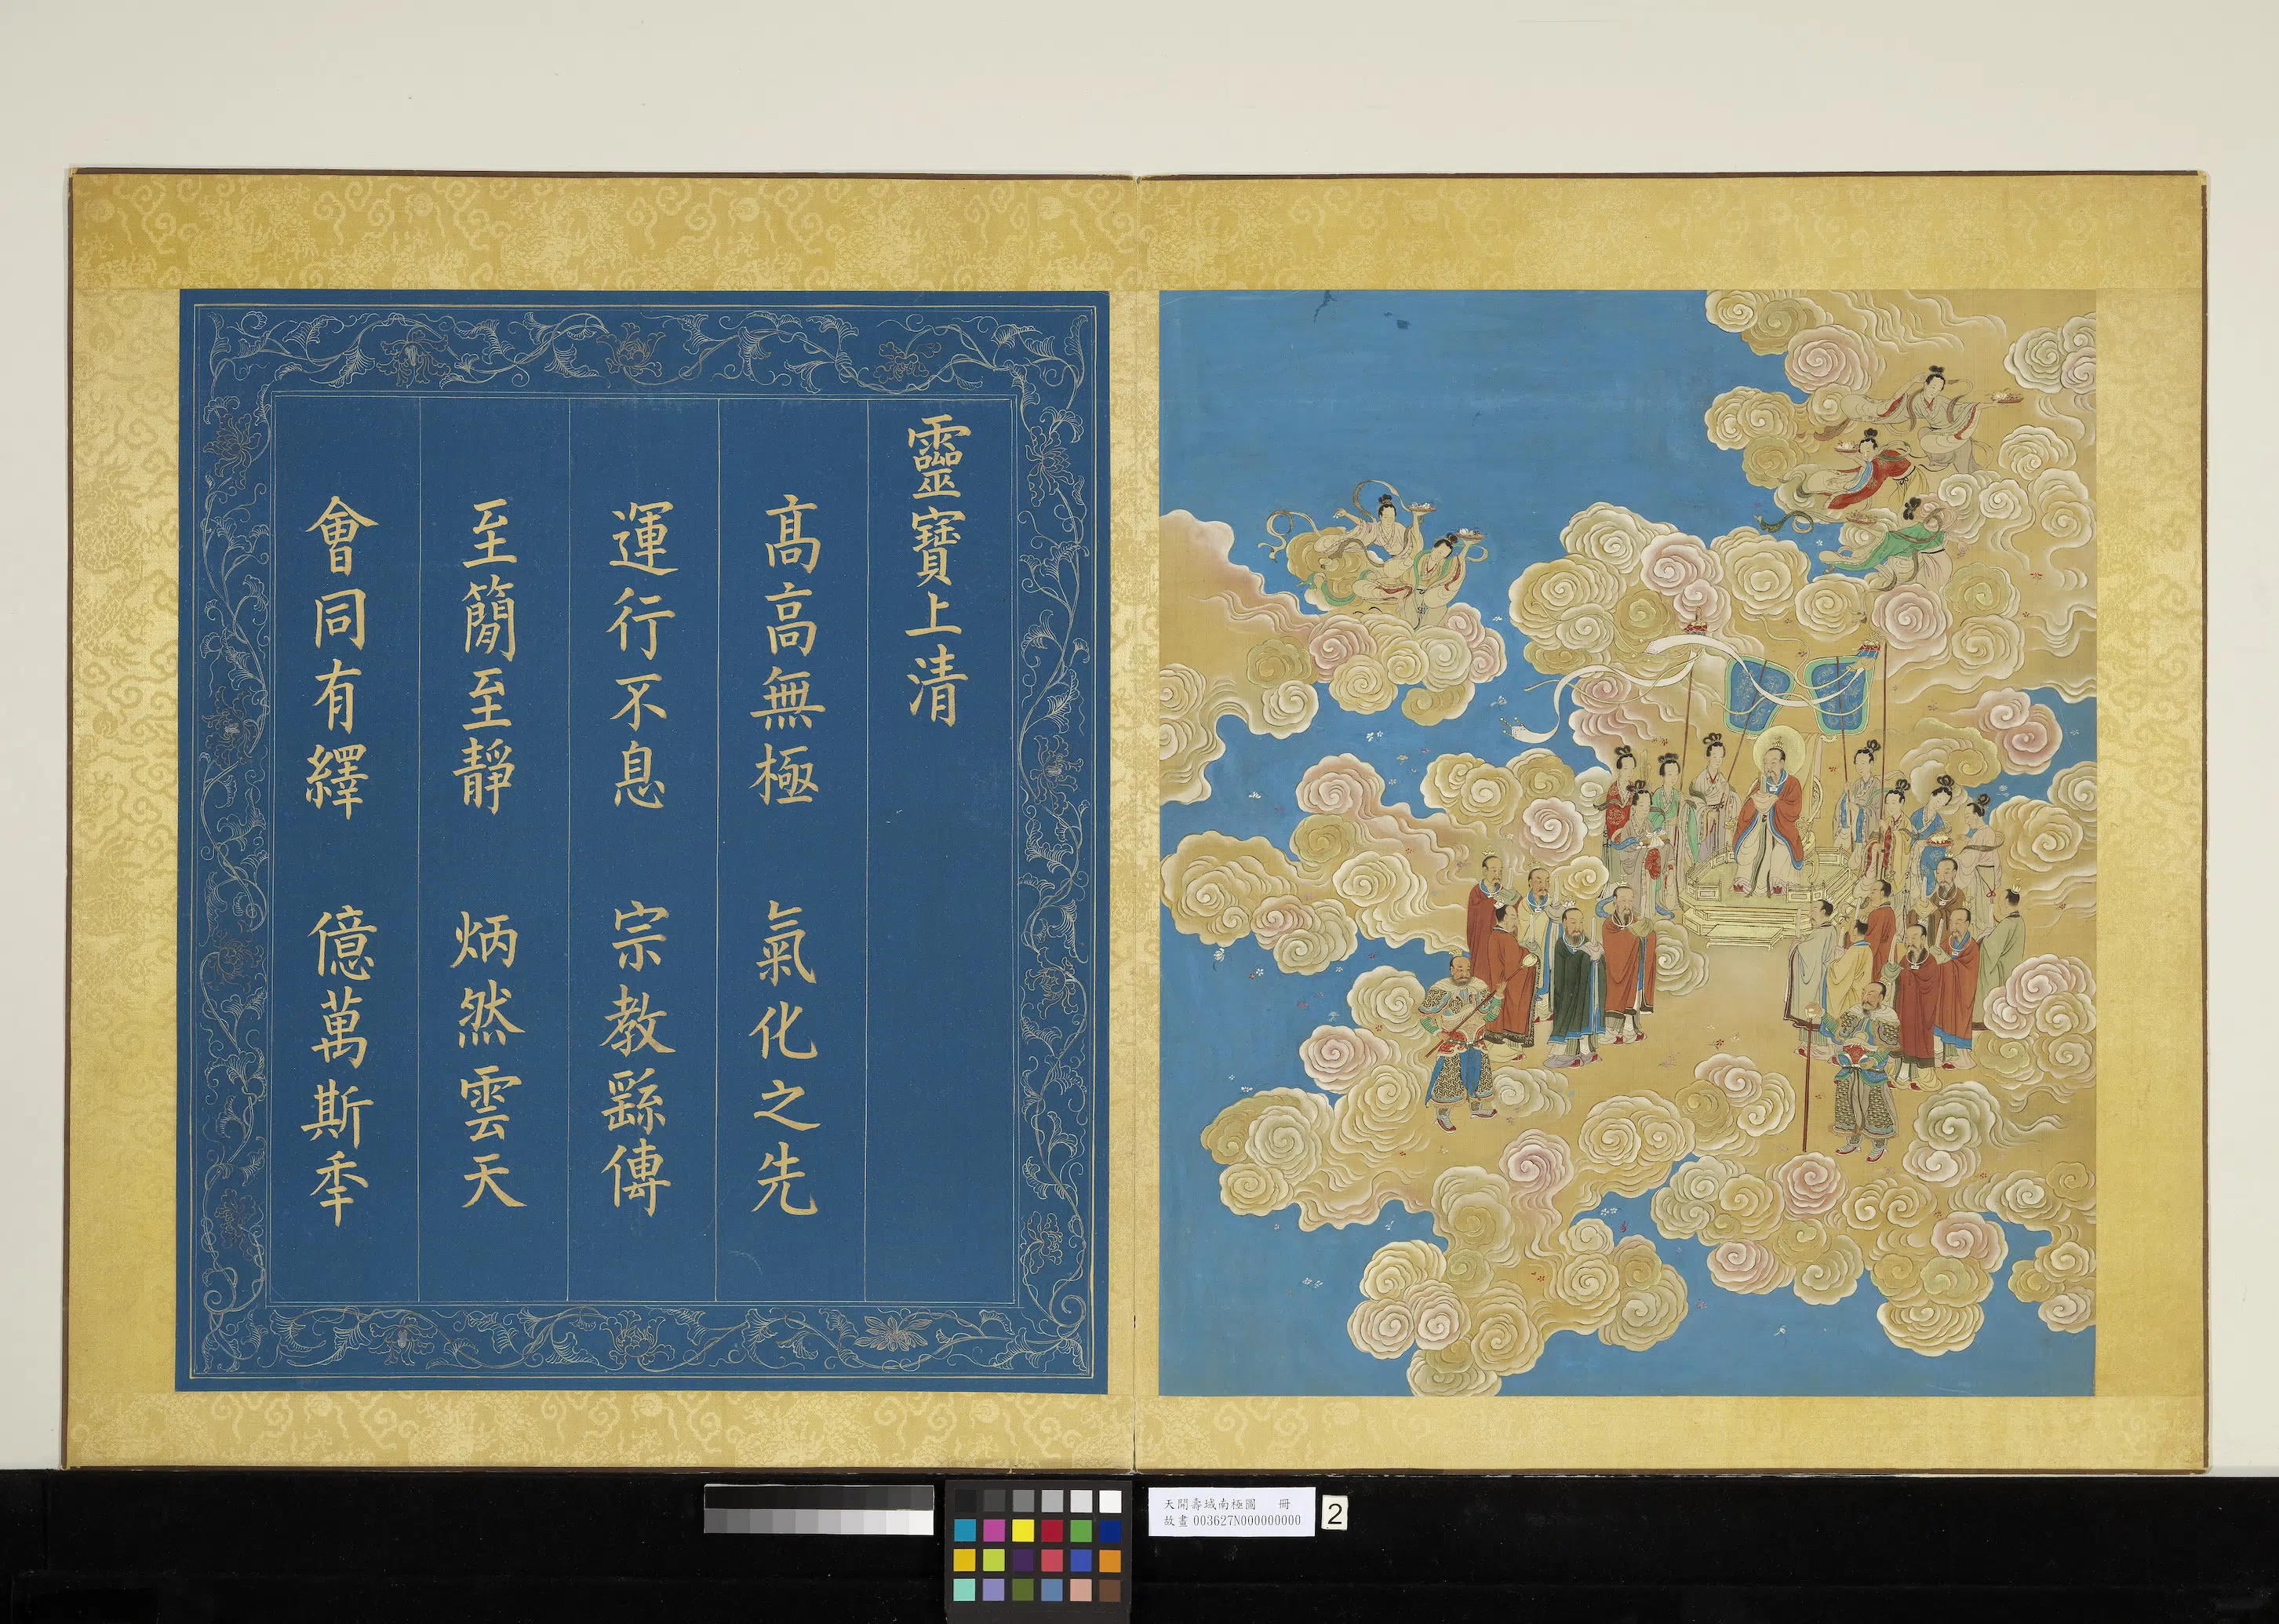 靈寶上清
髙高無極　氣化之先
運行不息　宗教繇傳
至簡至靜　炳然雲天
會同有繹　億萬斯秊
天開壽域南極圖　冊
故畫 003627N000000000
2